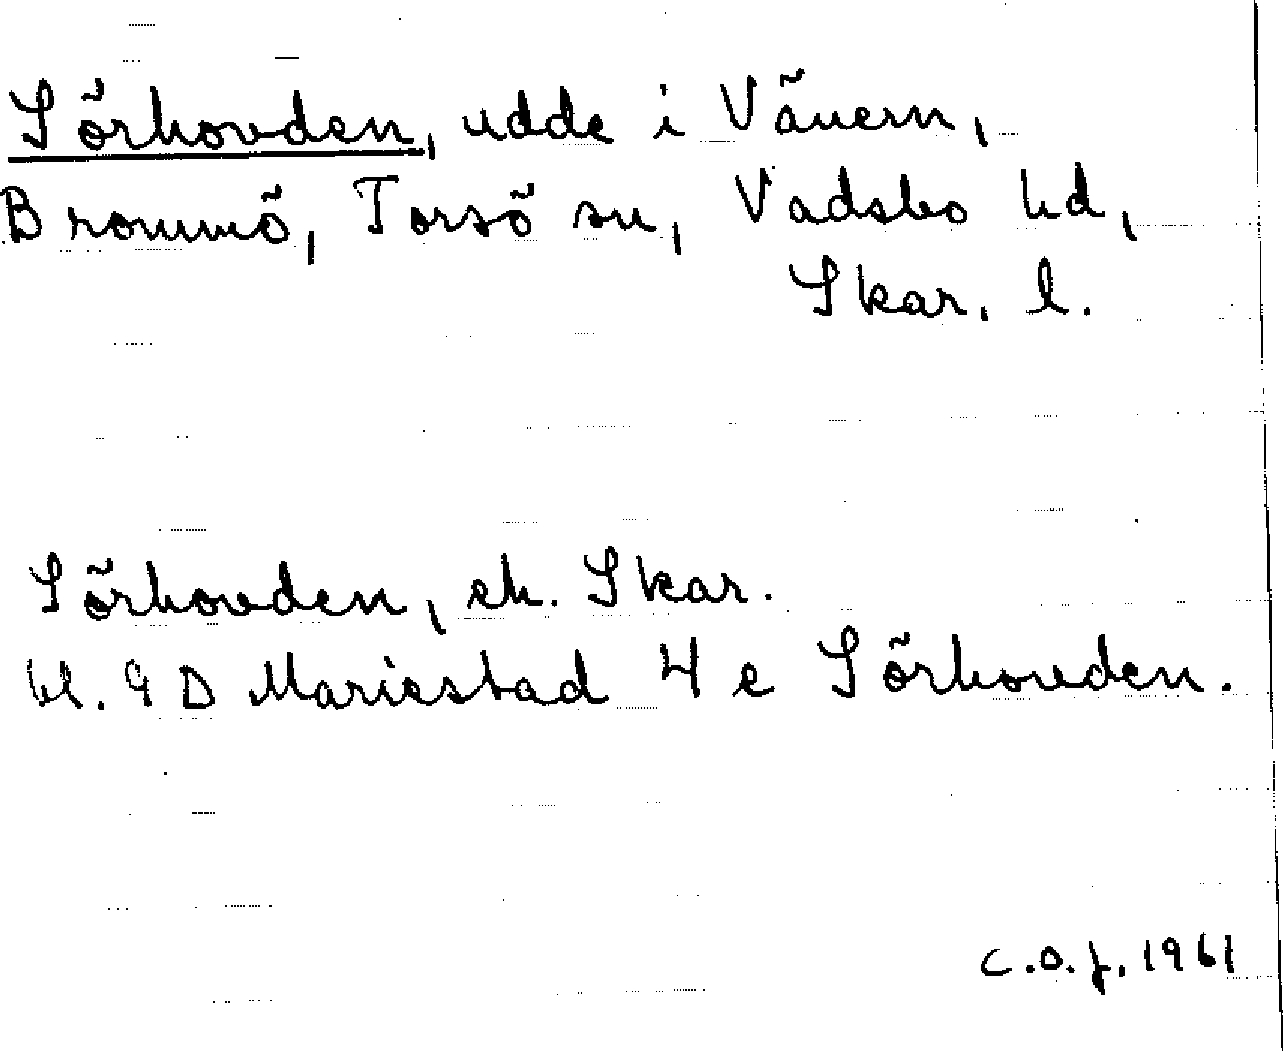 Sörhovden, udde i Vänern,
Brommö, Torsö sn, Vadsbo hd,
Skar. l.
Sörhovden, ek. Skar.
bl. 9 D Mariestad 4 e Sörhovden.
C.O.f. 1961